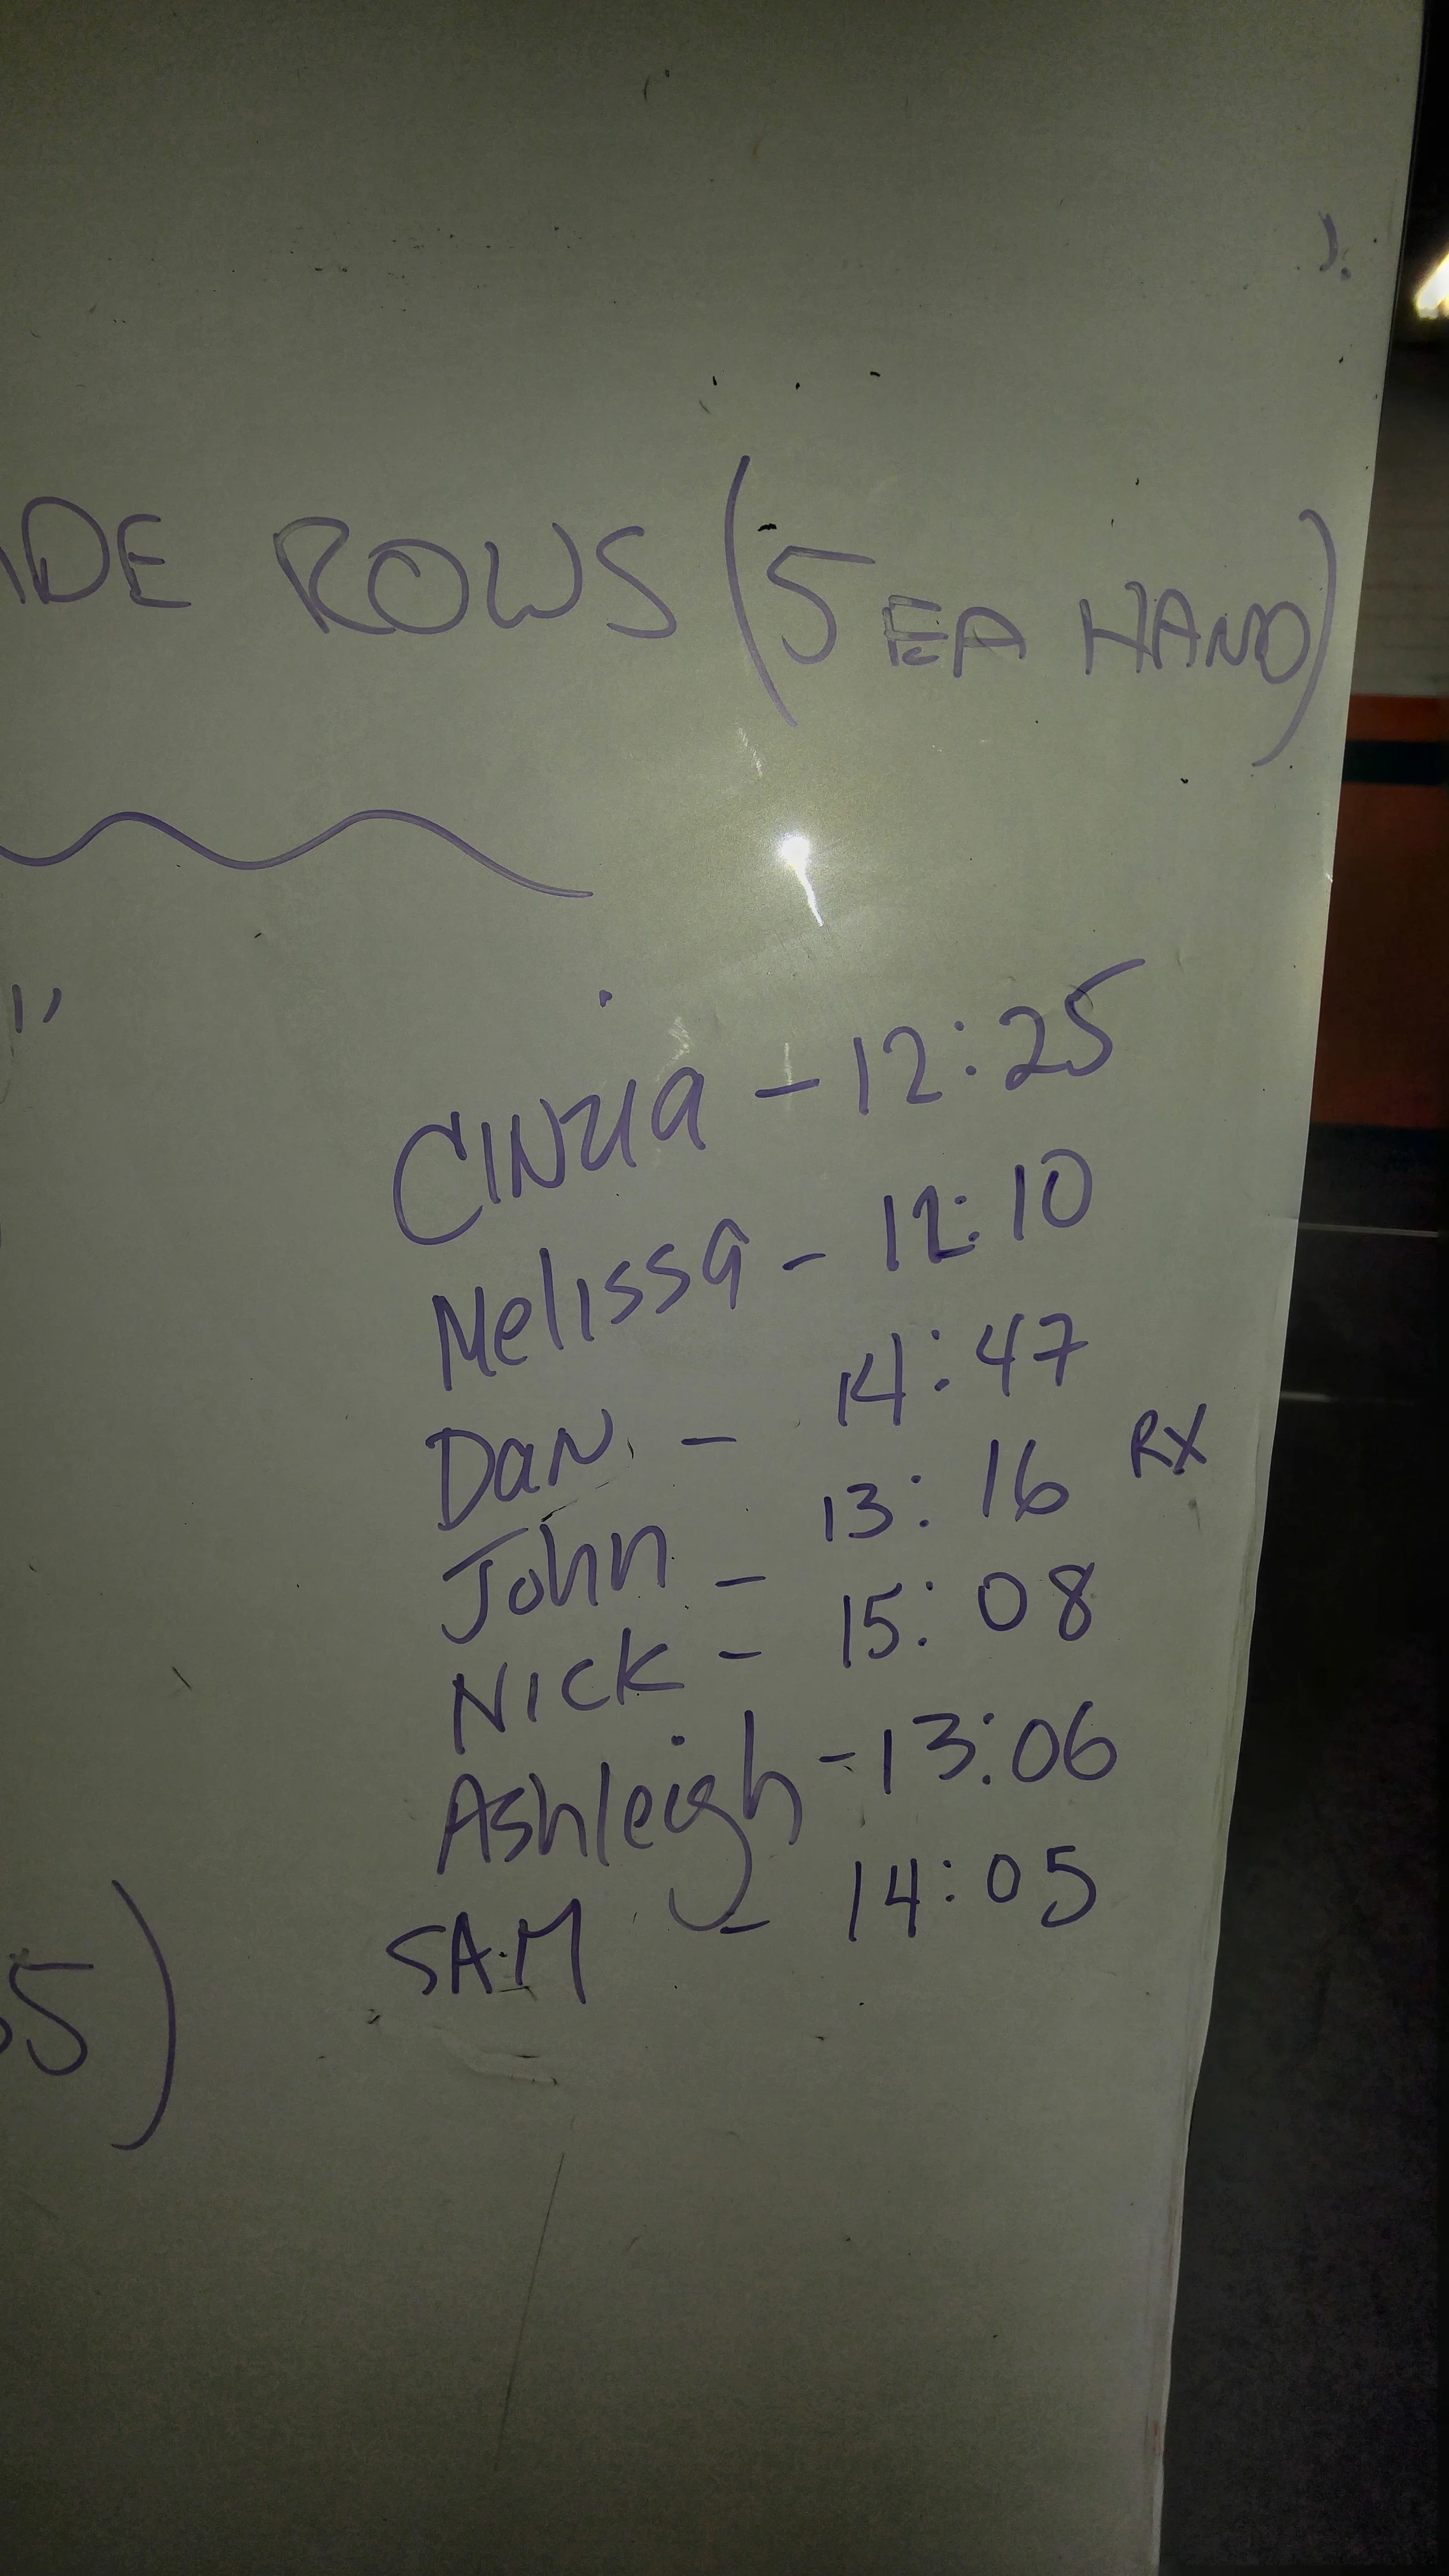 DE ROWS (5 EA HAND)
CINZIA - 12:25
Melissa - 12:10
Dan - 14:47
John - 13:16 RX
Nick - 15:08
Ashleigh - 13:06
SAM - 14:05
5)